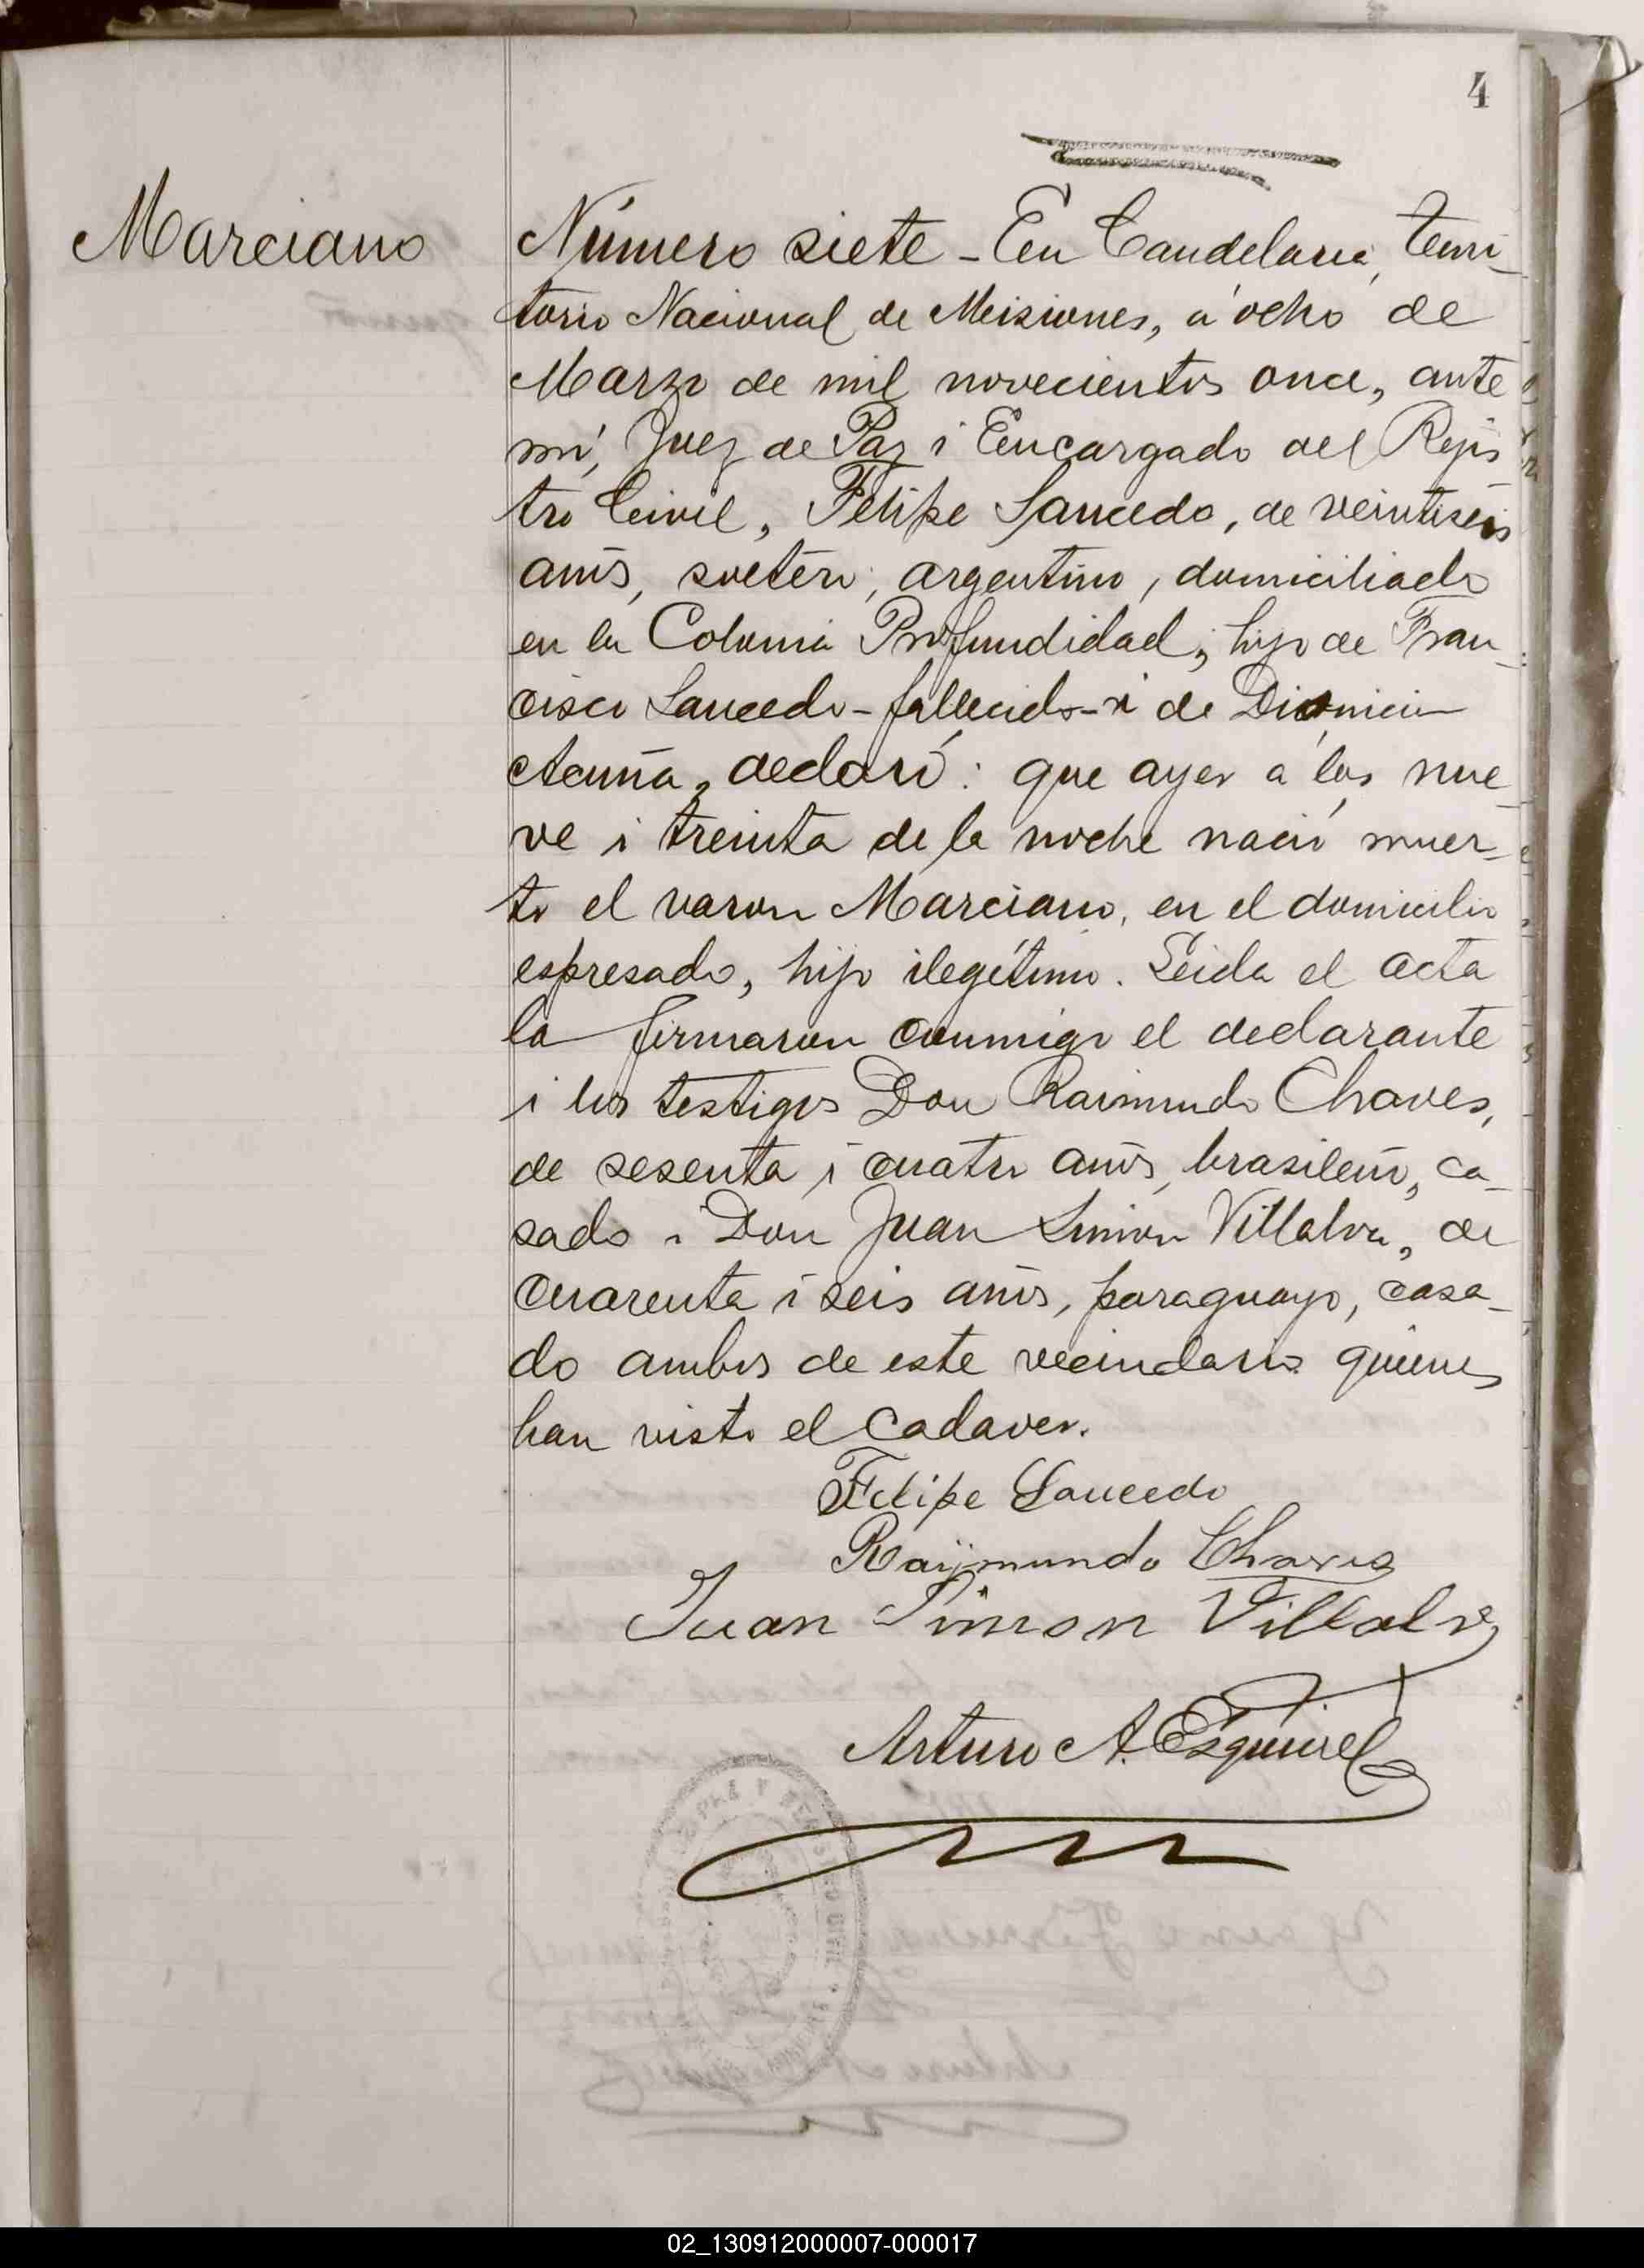 4
Marciano
Número siete - En Candelaria, Terri-
torio Nacional de Misiones, á ocho de
Marzo de mil novecientos once, ante
mí, Juez de Paz i Encargado del Rejis
tro Civil, Felipe Saucedo, de veintiseis
años, soltero, argentino, domiciliado
en la Colonia Profundidad, hijo de Fran-
cisco Saucedo - fallecido - i de Dionicia
Acuña, declaró: que ayer á las nue-
ve i treinta de la noche nació muer-
to el varon Marciano, en el domicilio
espresado, hijo ilegítimo. Leida el acta
la firmaron conmigo el declarante
i los testigos Don Raimundo Chaves,
de sesenta i cuatro años, brasilero, ca-
sado i Don Juan Simon Villalva, de
cuarenta i seis años, paraguayo, casa-
do ambos de este vecindario quienes
han visto el cadaver.
Felipe Saucedo
Raymundo Chaves
Juan Simon Villalva
Arturo A. Esquivel
02_130912000007-000017